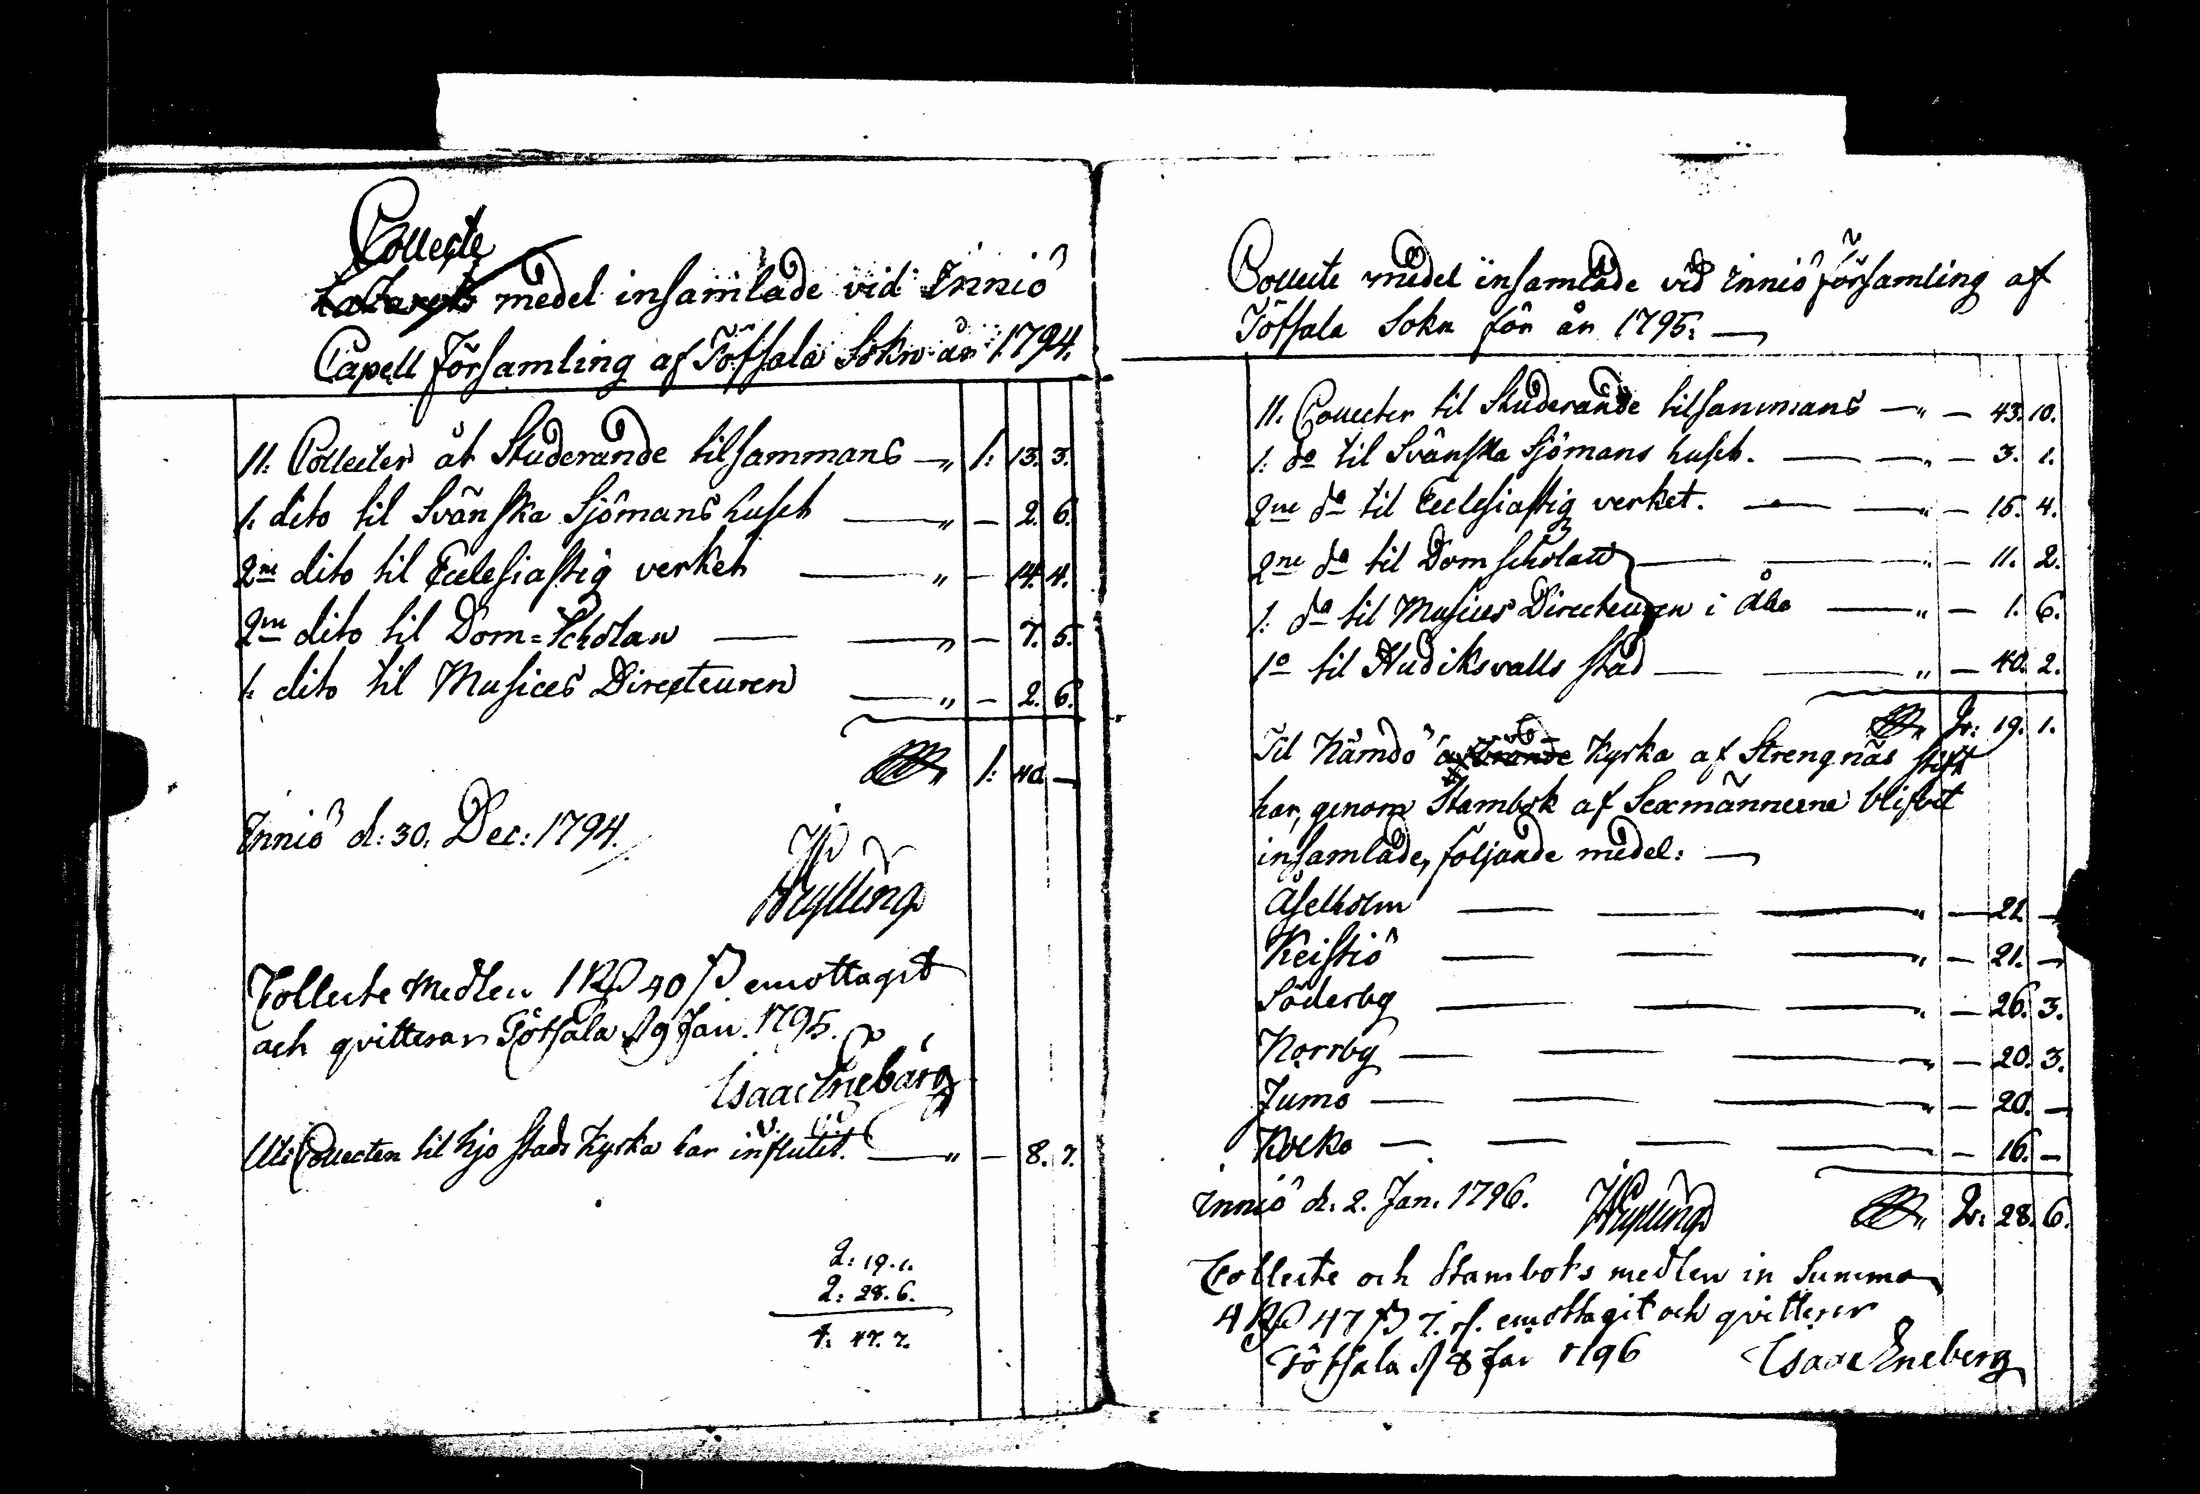 Collecte
medel insamlade vid Inniö
Capell församling af Töfsala Sokn år 1794.
11: Collecter åt Studerande tilsammans — „ 1: 13. 3.
1: dito til Svänska Sjömans huset — „ — 2. 6.
2ne dito til Ecclesiastiq verket — „ — 14. 4.
2ne dito til Dom=Scholan — — „ — 7. 5.
1: dito til Musices Directeuren — „ — 2. 6.
1: 40. —
Inniö d: 30. Dec: 1794.
Wylling
Collecte Medlen 1 Rd 40 ß emottagit
och qvitterar Töfsala d 9 Jan. 1795.
Isaac Enebärg
Uti Collecten til Hjo Stads Kyrka har influtit. — „ — 8. 7.
2: 19. 1.
2: 28. 6.
4: 47. 7.
Collecte medel insamlade vid Inniö församling af
Töfsala Sokn för år 1795: —
11. Collecter til Studerande tilsammans — „ — 43. 10.
1: do til Svänska Sjömans huset. — — „ — 3. 1.
2ne do til Ecclesiastiq verket. — — „ — 15. 4.
2ne do til Dom Scholan — — „ — 11. 2.
1: do til Musices Directeuren i Åbo — „ — 1. 6.
1o til Hudiksvalls stad — — „ — 40. 2.
2: 19. 1.
Til Nämdö Kyrka af Strengnäs stift
har, genom Stambok af Sexmännerne blifvit
insamlade, följande medel: —
Åselholm — — — „ — 21. —
Keistiö — — — „ — 21. —
Söderby — — — „ — 26. 3.
Norrby — — — „ — 20. 3.
Jumo — — — „ — 20. —
Kolko — — — — „ — 16. —
Inniö d. 2. Jan. 1796. Wylling 2: 28. 6.
Collecte och Stamboks medlen in Summa
4 Rd 47 ß 7. rs. emottagit och qvitterer
Töfsala d 8 Jan 1796 Isaac Eneberg